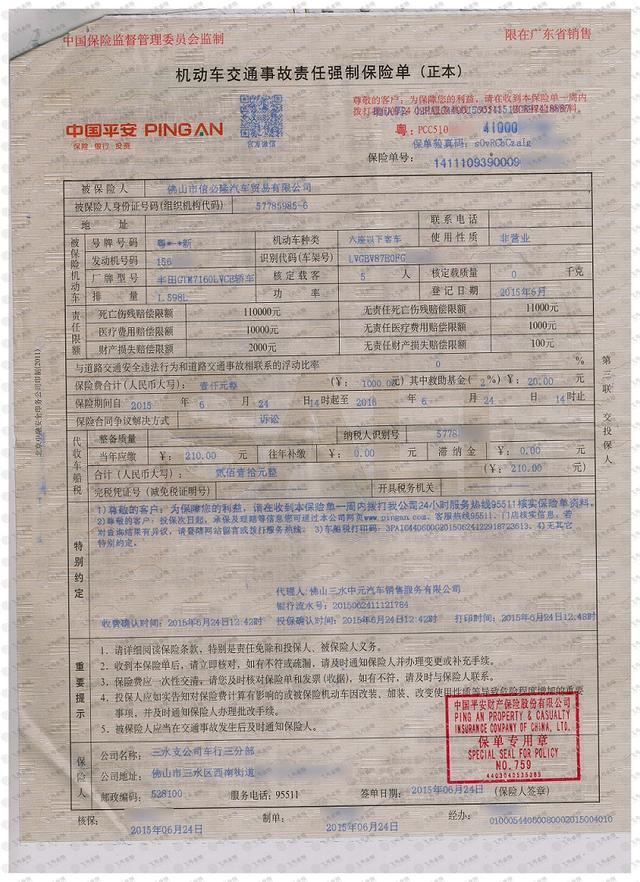 中国保险监督管理委员会监制 限在广东省销售
机动车交通事故责任强制保险单（正本）
中国平安 PING AN
保险 银行 投资
官方微信
尊敬的客户：为保障您的利益，请在收到本保险单一周内
粤：PCC510 41000
保单验真码：sOvRCbCzaig
保险单号：1411109390009
被保险人 佛山市信必隆汽车贸易有限公司
被保险人身份证号码(组织机构代码) 57785985-6
地址 联系电话
被保险机动车
号牌号码 粤*-*新 机动车种类 六座以下客车 使用性质 非营业
发动机号码 156 识别代码(车架号) LVGBV87E0FG
厂牌型号 丰田GTM7160LVCB轿车 核定载客 5 人 核定载质量 0 千克
排量 1.598L 功率 登记日期 2015年6月
责任限额
死亡伤残赔偿限额 110000元 无责任死亡伤残赔偿限额 11000元
医疗费用赔偿限额 10000元 无责任医疗费用赔偿限额 1000元
财产损失赔偿限额 2000元 无责任财产损失赔偿限额 100元
与道路交通安全违法行为和道路交通事故相联系的浮动比率 0 %
保险费合计(人民币大写)：壹仟元整 (￥：1000.00元) 其中救助基金(2%)￥：20.00 元
保险期间自 2015 年 6 月 24 日 14时起至 2016 年 6 月 24 日 14时止
保险合同争议解决方式 诉讼
代收车船税
整备质量 纳税人识别号 5778
当年应缴 ￥：210.00 元 往年补缴 ￥：0.00 元 滞纳金 ￥：0.00 元
合计(人民币大写)：贰佰壹拾元整 (￥：210.00 元)
完税凭证号(减免税证明号) 开具税务机关
特别约定
1)尊敬的客户：为保障您的利益，请在收到本保险单一周内拨打我公司24小时服务热线95511核实保险单资料。
2)尊敬的客户：投保次日起，承保及理赔等信息您可通过本公司网页www.pingan.com、客服热线95511、门店核实信息。若
对查询结果有异议，请登陆网站留言或拨打服务热线。3)车船税打印码：3PA10440600020150624122918723613。4)无其它
特别约定。
代理人：佛山三水中元汽车销售服务有限公司
银行流水号：2015062411121784
收费确认时间：2015年6月24日12:42时 投保确认时间：2015年6月24日12:42时 打印时间：2015年6月24日12:43时
重要提示
1. 请详细阅读保险条款，特别是责任免除和投保人、被保险人义务。
2. 收到本保险单后，请立即核对，如有不符或疏漏，请及时通知保险人并办理变更或补充手续。
3. 保险费应一次性交清，请您及时核对保险单和发票(收据)，如有不符，请及时与保险人联系。
4. 投保人应如实告知对保险费计算有影响的或被保险机动车因改装、加装、改变使用性质等导致危险程度增加的重要
事项，并及时通知保险人办理批改手续。
5. 被保险人应当在交通事故发生后及时通知保险人。
中国平安财产保险股份有限公司
PING AN PROPERTY & CASUALTY
INSURANCE COMPANY OF CHINA, LTD.
保单专用章
SPECIAL SEAL FOR POLICY
NO.759
4403040535285
保险人
公司名称：三水支公司车行三分部
公司地址：佛山市三水区西南街道
邮政编码：528100 服务电话：95511 签单日期：2015年06月24日 (保险人签章)
核保： 制单： 经办：
2015年06月24日 2015年06月24日 01000544060080002015004010
第三联 交投保人